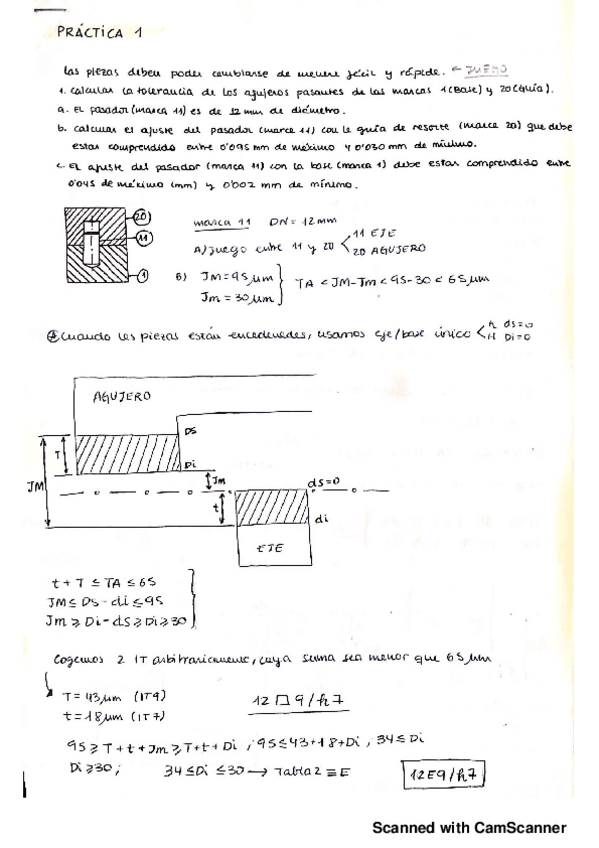 PRÁCTICA 1
Las piezas deben poder cambiarse de manera fácil y rápida. ← JUEGO
1. Calcular la tolerancia de los agujeros pasantes de las marcas 1(Base) y 20(Guía).
a. El pasador (marca 11) es de 12 mm de diámetro.
b. calcular el ajuste del pasador (marca 11) con la guía de resorte (marca 20) que debe
estar comprendido entre 0'095 mm de máximo y 0'030 mm de mínimo.
c. El ajuste del pasador (marca 11) con la base (marca 1) debe estar comprendido entre
0'045 de máximo (mm) y 0'002 mm de mínimo.
20
11
1
marca 11 DN=12mm
A) Juego entre 11 y 20
11 EJE
20 AGUJERO
B) JM=95 µm
Jm = 30 µm
TA < JM-Jm < 95-30 < 65 µm
Cuando las piezas están encadenadas, usamos eje/base único
h ds=0
H Di=0
AGUJERO
Ds
Di
T
JM
Jm
ds=0
t
di
EJE
t+T ≤ TA ≤ 65
JM ≤ Ds-di ≤ 95
Jm ≥ Di-ds ≥ Di ≥ 30
Cogemos 2 IT arbitrariamente, cuya suma sea menor que 65 µm
T=43 µm (IT9)
t=18 µm (IT7)
12 □ 9/h7
95 ≥ T+t+Jm ≥ T+t+Di ; 95 ≤ 43+18+Di ; 34 ≤ Di
Di ≥ 30 ; 34 ≤ Di ≤ 30 → Tabla 2 ≡ E
12E9/h7
Scanned with CamScanner